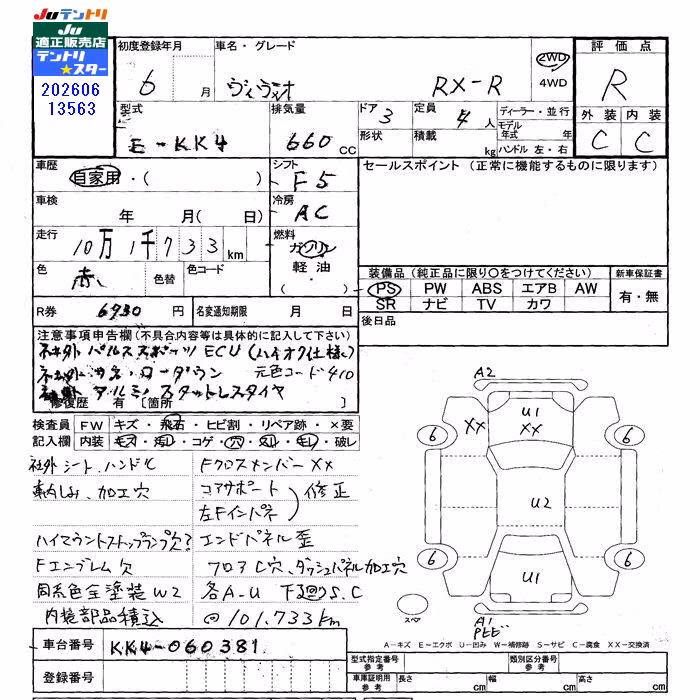 Juテントリ
Ju
適正販売店
テントリ
★スター
202606
13563
初度登録年月
車名・グレード
評価点
6 月
ヴィヴィオ RX-R
2WD
4WD
R
型式
排気量
ドア 3
定員 4 人
ディーラー・並行
外装 内装
E-KK4
660 CC
形状
積載 kg
モデル年式 年
ハンドル 左・右
C C
車歴
シフト
セールスポイント(正常に機能するものに限ります)
自家用・( )
F5
車検
冷房
年 月( 日)
AC
走行
燃料
10万1千733km
ガソリン
軽油
( )
色
色替
色コード
赤
装備品(純正品に限り○をつけてください)
新車保証書
PS PW ABS エアB AW
SR ナビ TV カワ
有・無
R券 6930 円
名変通知期限 月 日
後日品
注意事項申告欄(不具合,内容等は具体的に記入して下さい)
社外 パルススポーツECU(ハイオク仕様)
社外 サス・ローダウン 元色コード410
社外 アルミ,スタットレスタイヤ
修復歴 有 〔箇所 〕
検査員 FW キズ・飛石・ヒビ割・リペア跡・×要
記入欄 内装 キズ・汚レ・コゲ・穴・スレ・モレ・破レ
社外シート、ハンドル
FクロスメンバーXX
車内しみ、加工穴
コアサポート
左Fインパネ
)修正
ハイマウントストップランプ欠?
エンドパネル歪
Fエンブレム欠
フロアC穴、ダッシュパネル加工穴
同系色全塗装W2
各A-U 下廻S.C
内装部品積込
@101,733km
A2
XX
U1
XX
6
6
U2
6
6
U1
スペア
A1
PヒビA
A-キズ E-エクボ U-凹み W-補修跡 S-サビ C-腐食 XX-交換済
車台番号 KK4-060381
登録番号
型式指定番号
参考
類別区分番号
参考
車庫証明用
参考
長さ cm
幅 cm
高さ cm